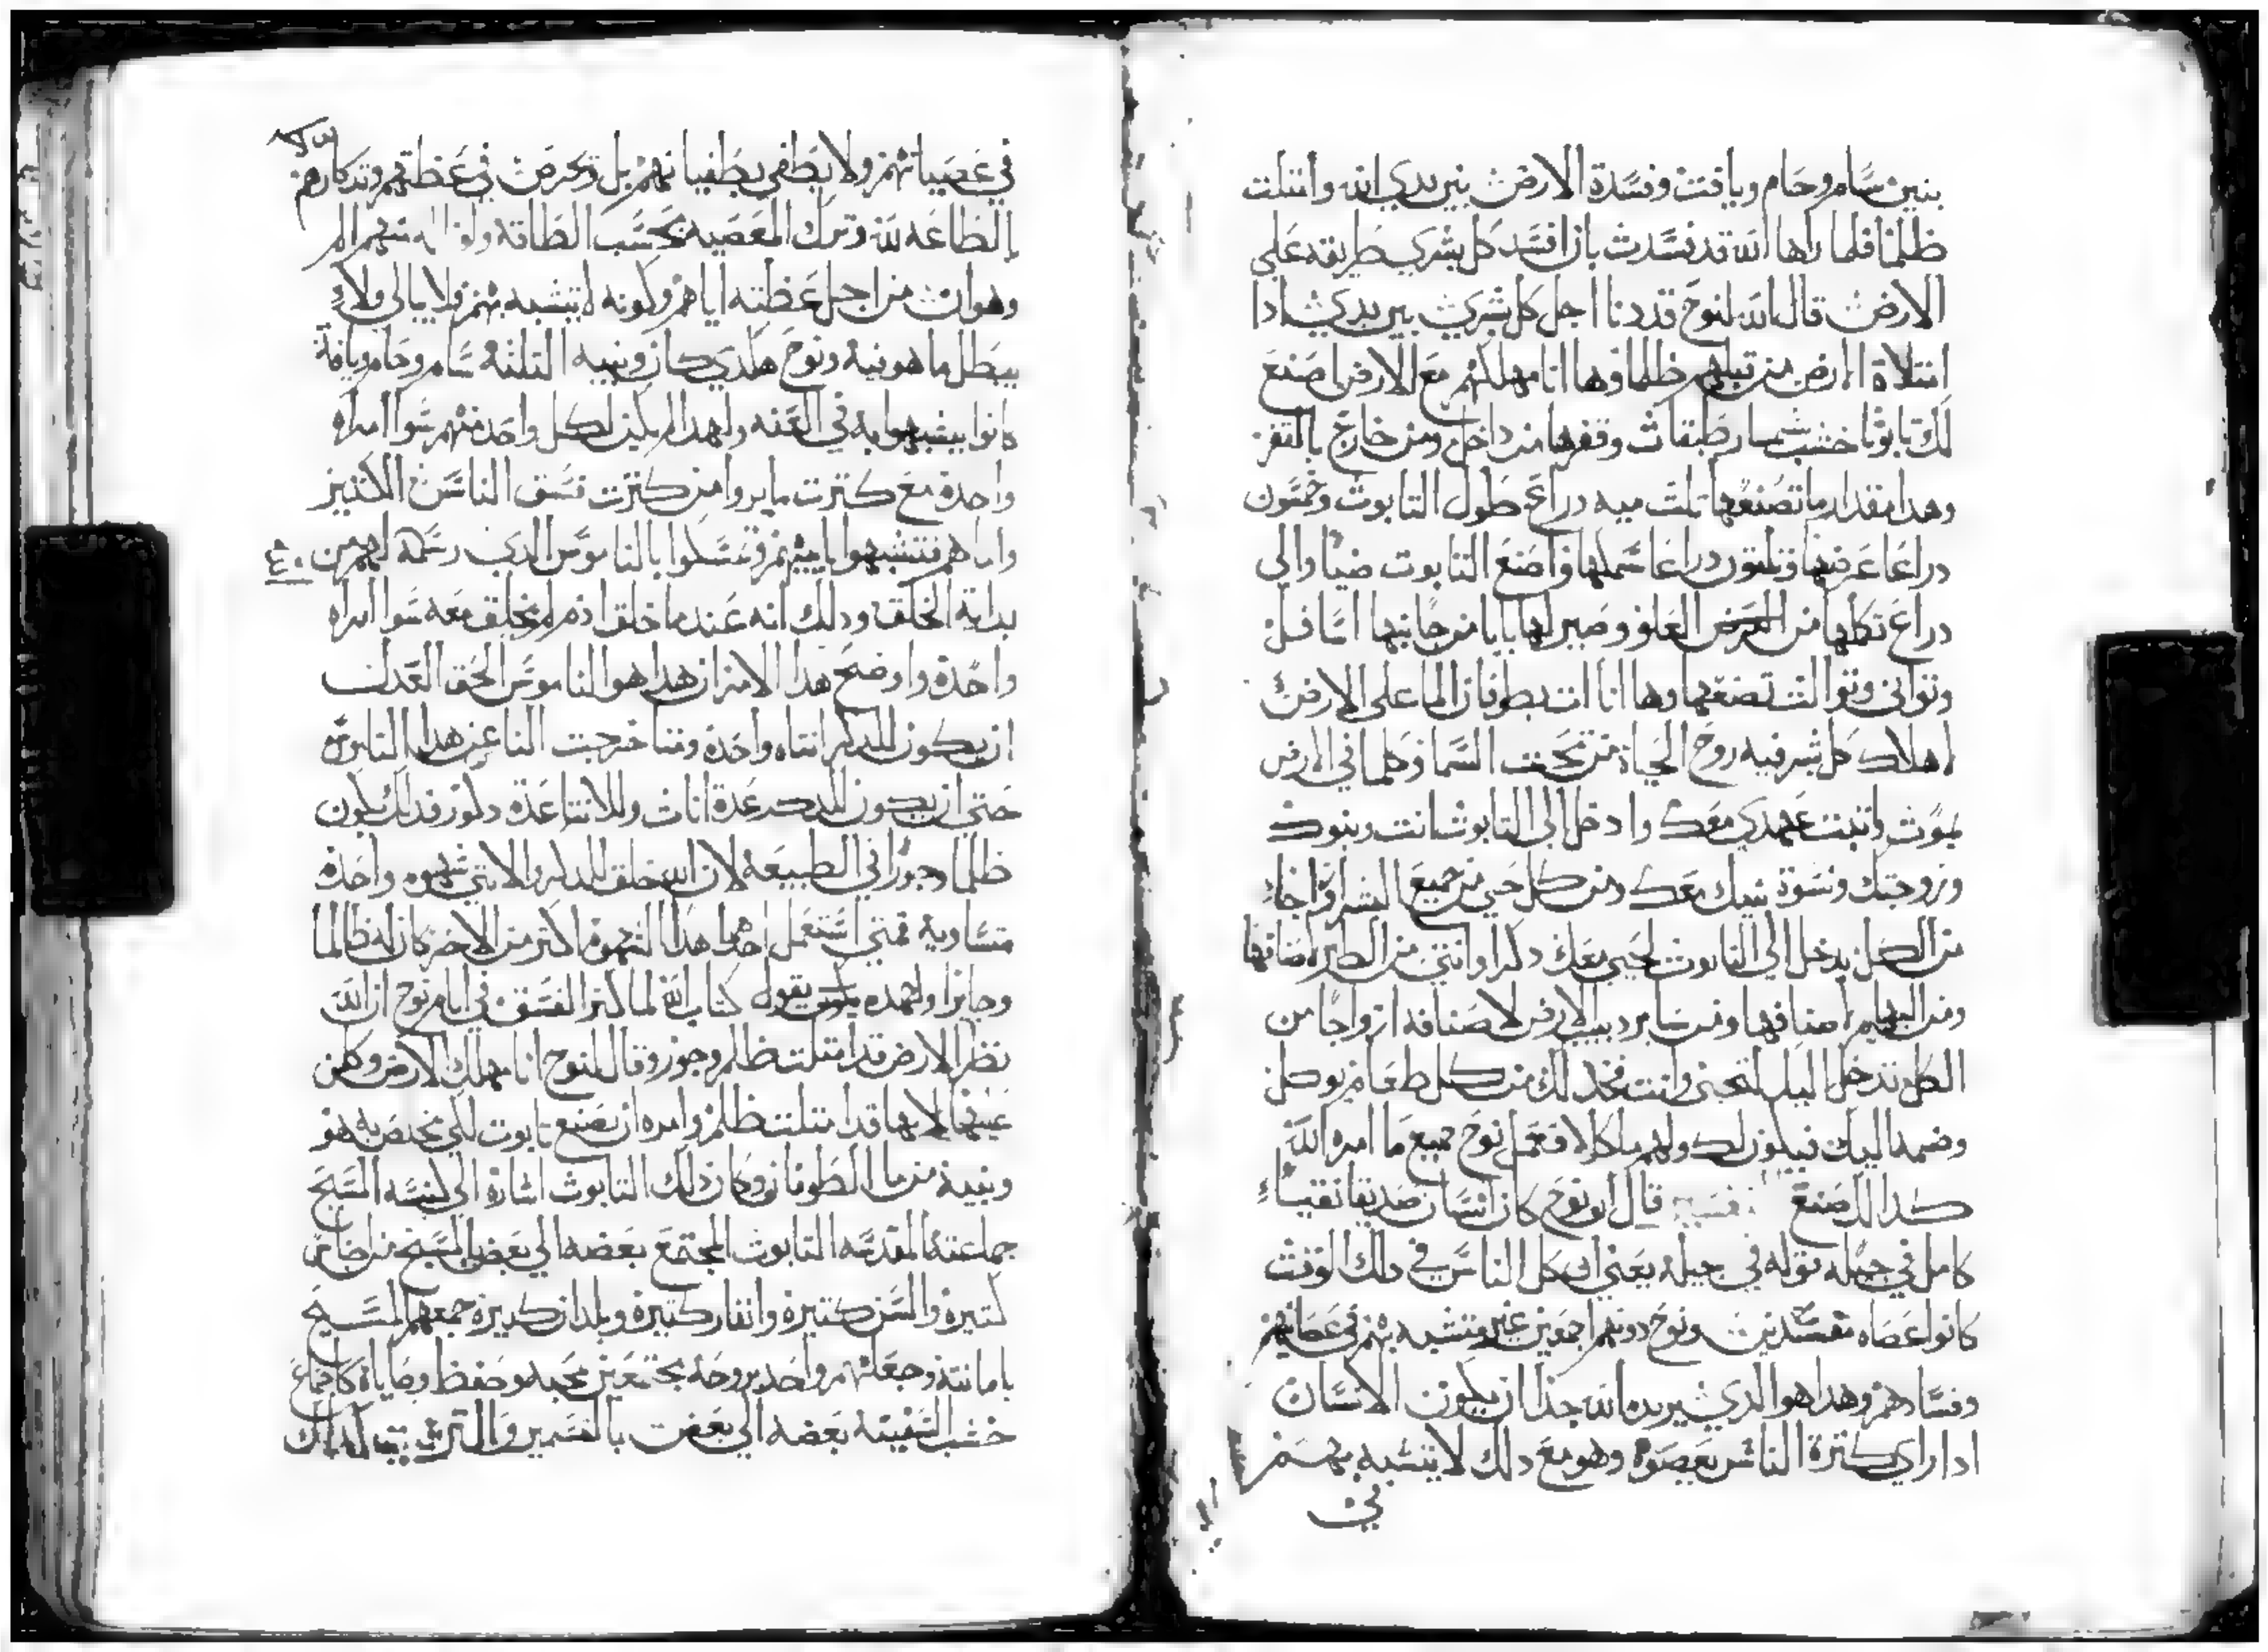 بنين سام وحام ويافت وفسدة الارض بين يدي الله وامتلت
ظلما فلما راها الله قد فسدت بان افسد كل بشري طريقه على
الارض قال الله لنوح قد دنا اجل كل بشري بين يدي ادا
امتلاة الارض من قبلهم ظلما وها انا مهلكهم مع الارض اصنع
لك تابوتا خشب طبقات وقفرها من داخل ومن خارج بالقفر
وهدا مقدار ما تصنعها تلت ميه دراع طول التابوت وخمسون
دراعا عرضها وتلتون دراعا سملها واصنع التابوت ضيا والي
دراع تكلها من العرض العلو وصير لها بابا من جانبها اسافل
وتواني وتوالت تصنعها وها انا ات بطوفان الما على الارض
اهلاك كل بشر فيه روح الحياة من تحت السما وكلما في الارض
يموت واتبت عهدي معك وادخل الى التابوت انت وبنوك
وزوجتك ونسوة بنيك معك ومن كل حي من جميع البشر
من الكل يدخل الي التابوت لتحيي معك دكرا وانتي من الطير لاصنافها
ومن البهايم اصنافها ومن ساير دبيب الارض لاصنافه ازواجا من
الكل تدخل اليك لتحيي وانت فخد لك من كل طعام يوكل
وضمه اليك فيكون لك ولهم ماكلا فعمل نوح جميع ما امره الله
كدالك صنع تفسير قال ان نوح كان انسان صديقا نقيا
كامل في جيله قوله في جيله يعني ان كل الناس في دلك الوقت
كانوا عصاه مفسدين ونوح دونهم اجمعين غير متشبه بهم في عصيانهم
وفسادهم وهدا هو الدي يريده الله جدا ان يكون الانسان
ادا راي كترة الناس يعصوه وهو مع دلك لا يتشبه بهم
في
في عصيانهم ولا يطغي بطغيانهم بل وتحرص في عظتهم وتدكارهم
بالطاعه لله وترك المعصيه بحسب الطاقه منهم الم
وهوان من اجل عظته اياهم وكونه لا يتشبه بهم ولا يبالي
يبطل ما هو فيه ونوح هكدي كان وبنيه التلته سام وحام ويافت
كانوا يتشبهوا به في العفه ولهدا لم يكن لكل واحد منهم سوا امراه
واحدة مع كترت ما يروا من كترت فسق الناس الكتير
واما هم فتشبهوا بابيهم وتمسكوا بالناموس الدي رسمه لهم من
٤٠
بداية الخلق ودلك انه عندما خلق ادم لم يخلق معه سوا امراه
واحدة واوضح هدا الامر ان هدا هو الناموس الحق العدل
ان يكون للدكر انتاه واحدة ومتا خرجت الناس عن هدا الناموس
حتى ان يكون للدكر عدة انات وللانتا عدة دكور فدلك يكون
ظلما وجورا في الطبيعه لان الله خلق للدكر والانتي شهوه واحدة
متساويه فمتي استعمل احدا هدا الشهوة اكتر من الاخر كان له ظالما
وجايرا ولهده يقول كتاب الله لما كتر الفسق في ايام نوح ان الله
نظر الارض قد امتلت ظلم وجور وقال لنوح انا مهلك الارض وكلمن
عليها لانها قد امتلت ظلم وامره ان يصنع تابوت لكي يخلص به هو
وبنيه من ما الطوفان وكان دلك التابوت اشارة الي كنيسة المسيح
جماعته المقدسه التابوت المجتمع بعضه الي بعض المسيح من اجناس
كتيرة والسن كتيرة واقطار كتيرة وبلدان كتيرة جمعهم المسيح
بامانته وجعلهم واحد بروحه مجتمعين بمحبه وحفظ وصاياه كاجتماع
خشب السفينه بعضه الي بعض بالمسامير